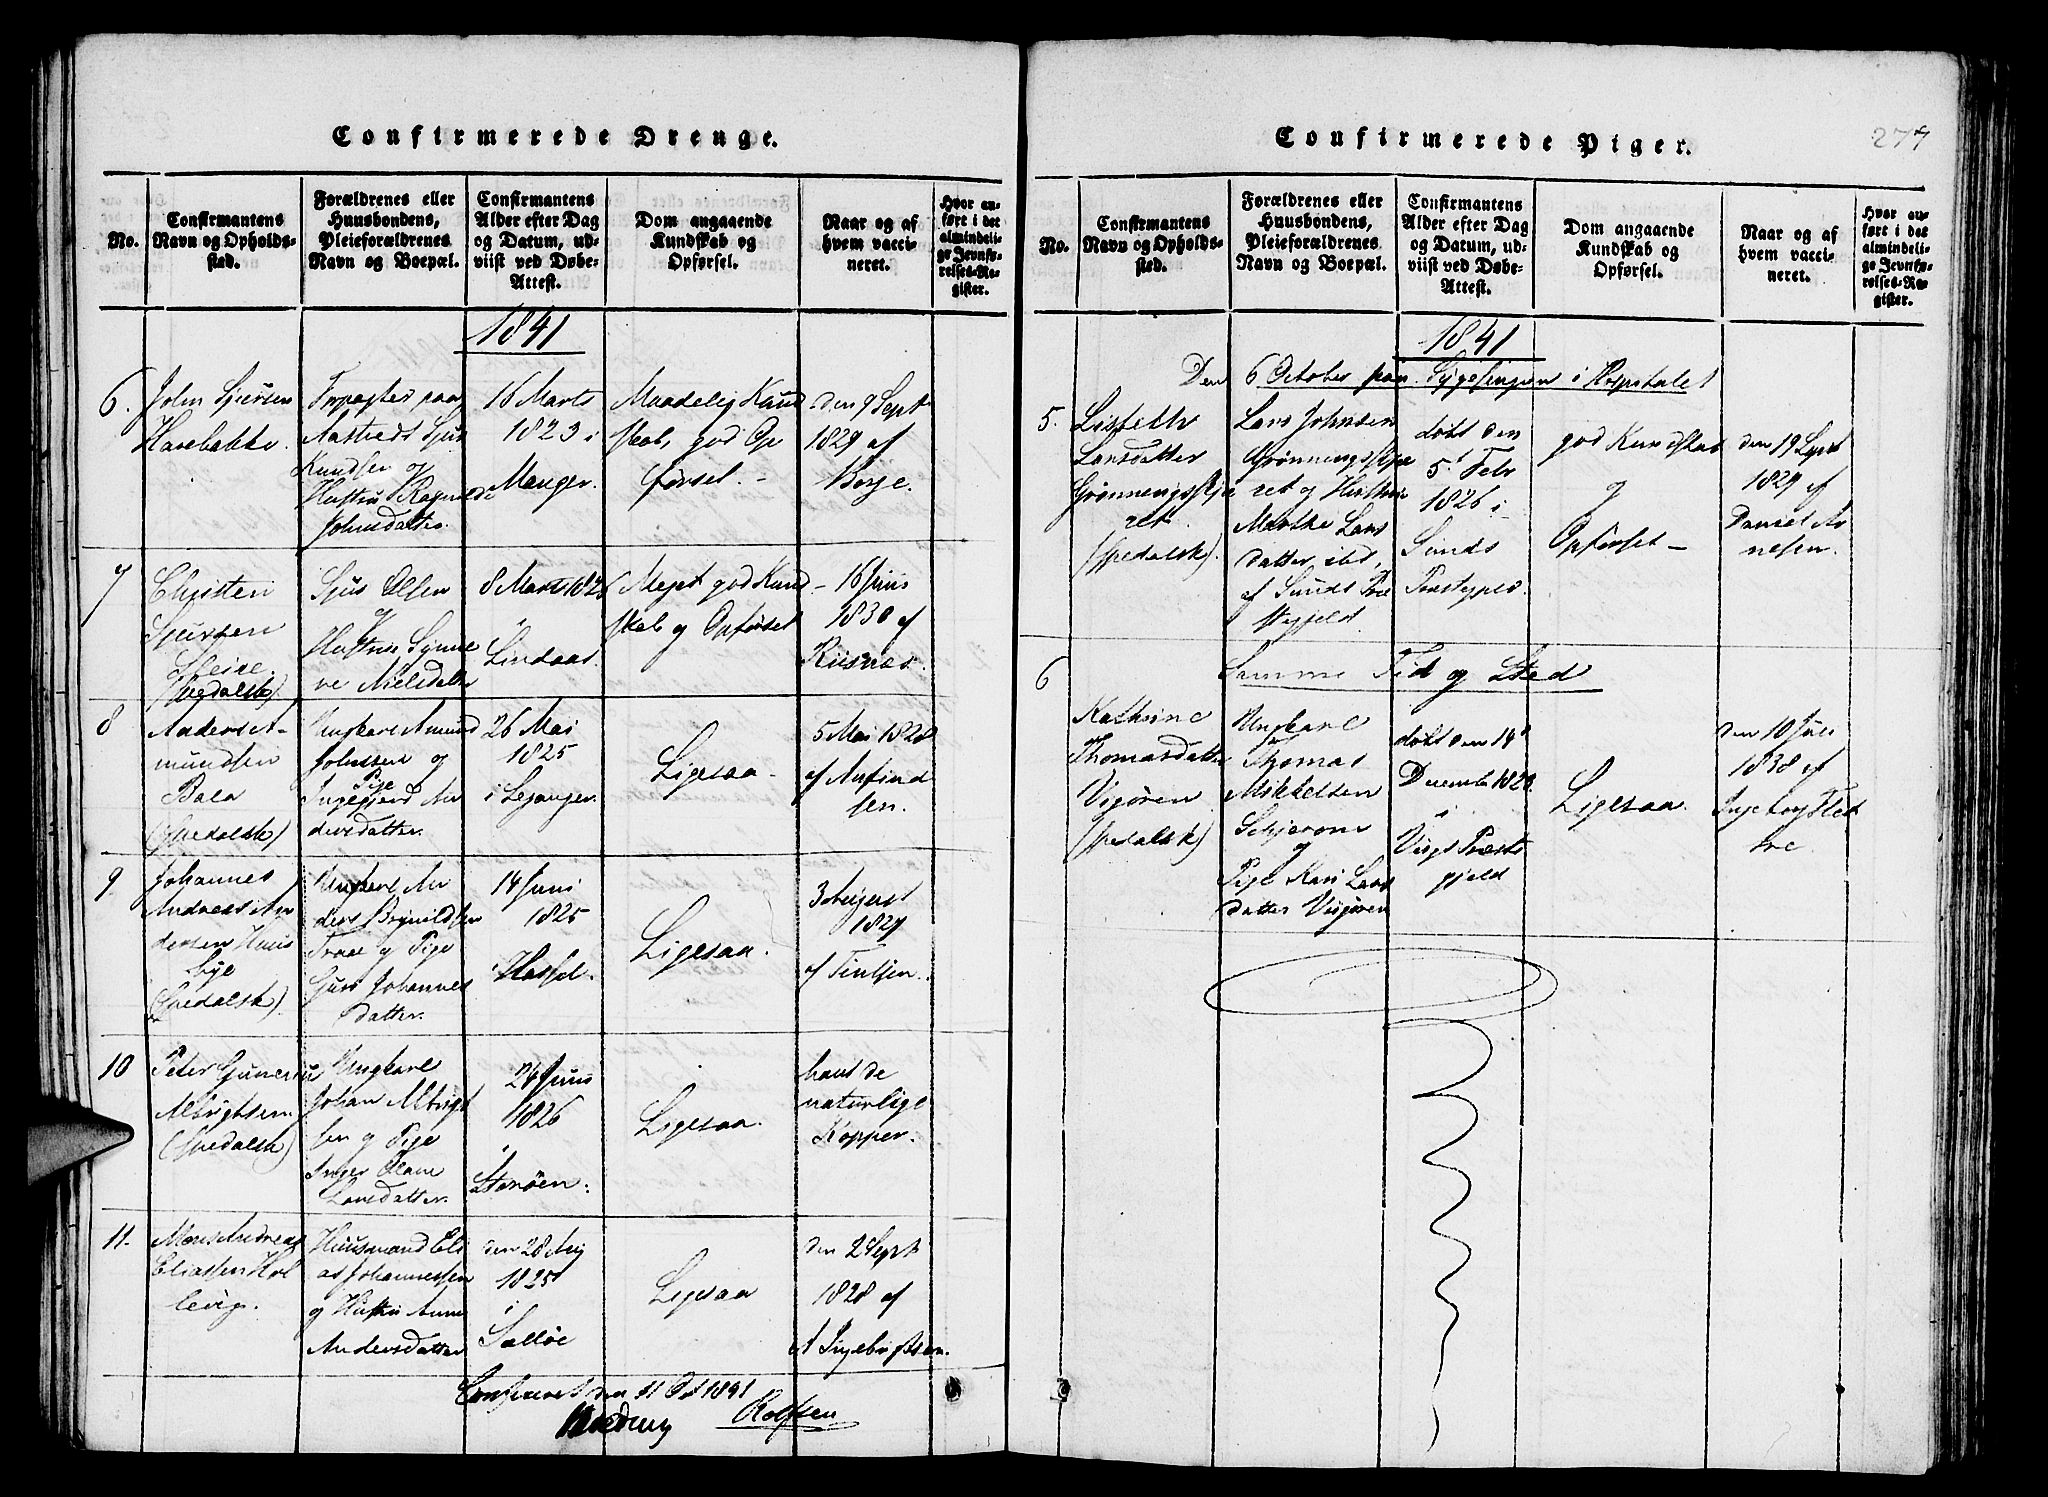 Confirmerede Drenge.
No.
Confirmantens
Navn og Opholds-
sted.
Forældrenes eller
Huusbondens,
Pleieforældrenes
Navn og Boepæl.
Confirmantens
Alder efter Dag
og Datum, ud-
viist ved Døbe-
Attest.
Dom angaaende
Kundskab og
Opførsel.
Naar og af
hvem vacci-
neret.
Hvor an-
ført i det
almindeli-
ge Jevnfø-
relses-Re-
gister.
1841
6.
John Sjursen
Havebakke.
Forpagter paa
Aastreds Sjur
Knudsen og
Hustru Ragnilde
Johnsdatter.
16 Marts
1823 i
Manger.
Maadelig Kund
skab, god Op
førsel. -
den 9 Sept
1829 af
Borge.
7
Christen
Sjursen
(Spedalsk)
Sjur Olsen
og
Hustru Synne
ve Nielsdatter
8 Marts 1826
i
Lindaas.
Meget god Kund
skab og Opførsel
- 16 Juni
1830 af
Riisnæs.
8
Anders A-
mundsen
Bala
(Spedalsk)
Ungkarl Amund
Johnsen og
Pige
Ingegjerd An
dersdatter.
26 Mai
1825
i Lejanger.
Ligesaa.
5 Mai 1828
af Anfind
sen.
9
Johannes
Andreas An
dersen Huus
bye
(Spedalsk).
Ungkarl An
ders Brynildsen
Traae og Pige
Guri Johannes
datter.
14 Juni
1825
i Hasfel.
Ligesaa.
3 August
1827
af
10
Peter Gunerius
Albrigtsen
(Spedalsk)
Ungkarl
Johan Albrigt
sen og Pige
Inger Olave
Larsdatter.
24 Juni
1826
i
Storöen.
Ligesaa.
havt de
naturlige
Kopper.
11.
Mons Andreas
Eliassen Hol
levig.
Huusmand Eli
as Johannessen
og Hustru Anne
Andersdatter
den 28 Aug
1825
i
Solløe
Ligesaa
den 2 Sept
1828 af
A Ingebrigtsen.
Confirmeret den 11 Oct 1841
Rolfsen
Confirmerede Piger.
277
No.
Confirmantens
Navn og Opholds-
sted.
Forældrenes eller
Huusbondens,
Pleieforældrenes
Navn og Boepæl.
Confirmantens
Alder efter Dag
og Datum, ud-
viist ved Døbe-
Attest.
Dom angaaende
Kundskab og
Opførsel.
Naar og af
hvem vacci-
neret.
Hvor an-
ført i det
almindeli-
ge Jevnfø-
relses-Re-
gister.
1841
Den 6 October paa Sygesengen i Hospitalet
5.
Lisbeth
Larsdatter
Grønningsskje
ret.
(Spedalsk).
Lars Johnsen
Grønningsskje
ret og Hustrue
Marthe Lars
datter, ibd,
af Sunds Præ
stegjeld.
døbt den
5t Febr
1826 i
Sunds
god Kundskab
og
Opførsel -
den 19 Sept
1829 af
Daniel Ar
nesen.
6
Samme Tid og Sted
Kathrine
Thomasdatter
Vigören
(Spedalsk)
Ungkarl
Thomas
Mikkelsen
og
Pige Kari Lars
datter Vigören
døbt den 14de
December 1820
i
Viigs Præste
gjeld
Ligesaa.
den 10 Juli
1838 af